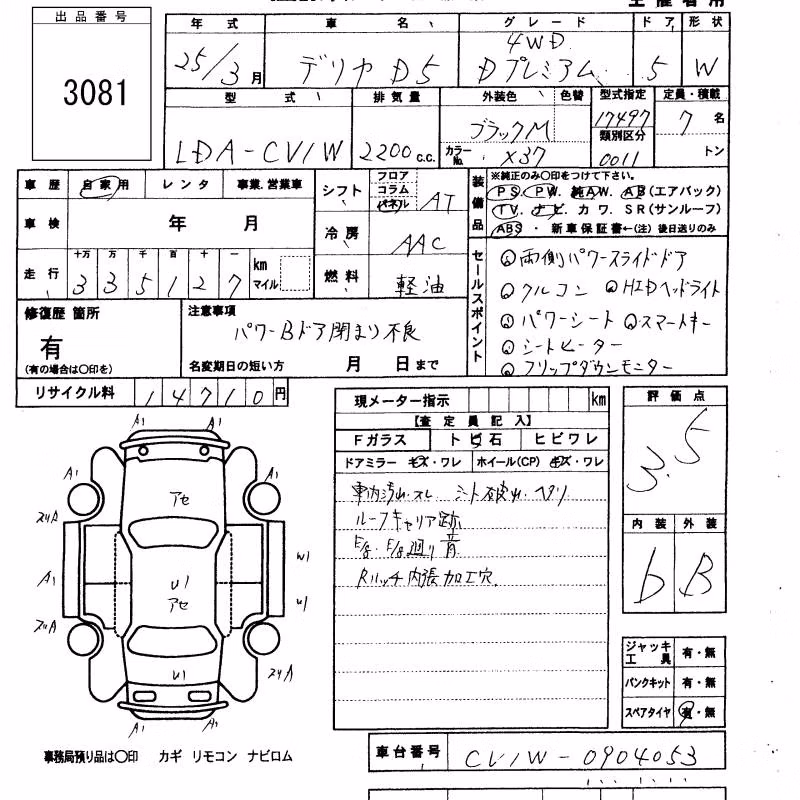 出品番号
3081
年式 車名 グレード ドア 形状
25/3月 デリカD5 4WD Dプレミアム 5 W
型式 排気量 外装色 色替 型式指定 定員・積載
LDA-CV1W 2200c.c. ブラックM カラーNo. X37 17497 類別区分 0011 7名 トン
車歴 自家用 レンタ 事業.営業車
車検 年 月
走行 十万 万 千 百 十 一 km マイル
3 3 5 1 2 7
シフト フロア コラム パネル AT
冷房 AAC
燃料 軽油
装備品 ※純正のみ〇印をつけて下さい。
PS. PW. 純AW. AB(エアバック)
TV. ナビ. カワ. SR(サンルーフ)
ABS ・ 新車保証書←(注) 後日送りのみ
セールスポイント
両側パワースライドドア
クルコン HIDヘッドライト
パワーシート スマートキー
シートヒーター
フリップダウンモニター
修復歴 箇所
有
(有の場合は〇印を)
注意事項
パワーBドア閉まり不良
名変期日の短い方 月 日まで
リサイクル料 14710円
現メーター指示 km
【査定員記入】
Fガラス トビ石 ヒビワレ
ドアミラー キズ・ワレ ホイール(CP) キズ・ワレ
車内汚れ・スレ シート破れ・ヘタリ
ルーフキャリア跡
E/g・E/g廻り音
Rハッチ内張加工穴
評価点
3.5
内装 外装
b B
ジャッキ工具 有・無
パンクキット 有・無
スペアタイヤ 有・無
A1 A1
A1 アセ A1
スリA
W1
A1 U1 アセ U1
スリA
U1 スリA
A1 A1
事務局預り品は〇印 カギ リモコン ナビロム
車台番号 CV1W-0904053